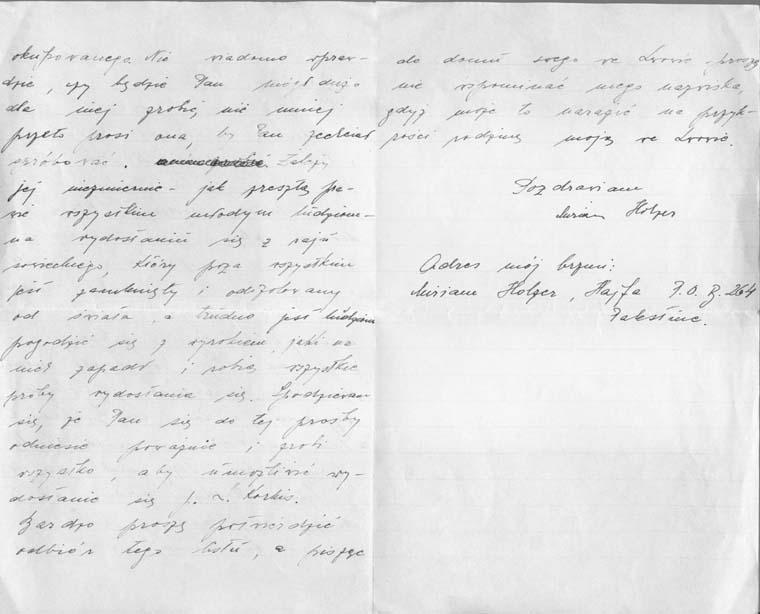 okupowanego. Nie wiadomo wpraw-
dzie, czy będzie Pan mógł dużo
dla niej zrobić nie mniej
przeto prosi ona, by Pan zechciał
spróbować. Zależy
jej niezmiernie - jak zresztą pra-
wie wszystkim młodym ludziom -
na wydostaniu się z raju
sowieckiego, który poza wszystkim
jest zamknięty i odizolowany
od świata, a trudno jest ludziom
pogodzić się z wyrokiem, jaki na
nich zapadł i robią wszystkie
próby wydostania się. Spodziewam
się, że Pan się do tej prośby
odniesie poważnie i zrobi
wszystko, aby umożliwić wy-
dostanie się p. L. Korkis.
Bardzo proszę potwierdzić
odbiór tego listu, a pisząc
do domu swego we Lwowie proszę
nie wspominać mego nazwiska,
gdyż może to narazić na przyk-
rości rodzinę moją we Lwowie.
Pozdrawiam
Miriam Holzer
Adres mój brzmi:
Miriam Holzer, Hajfa P.O.B. 264
Palestine.